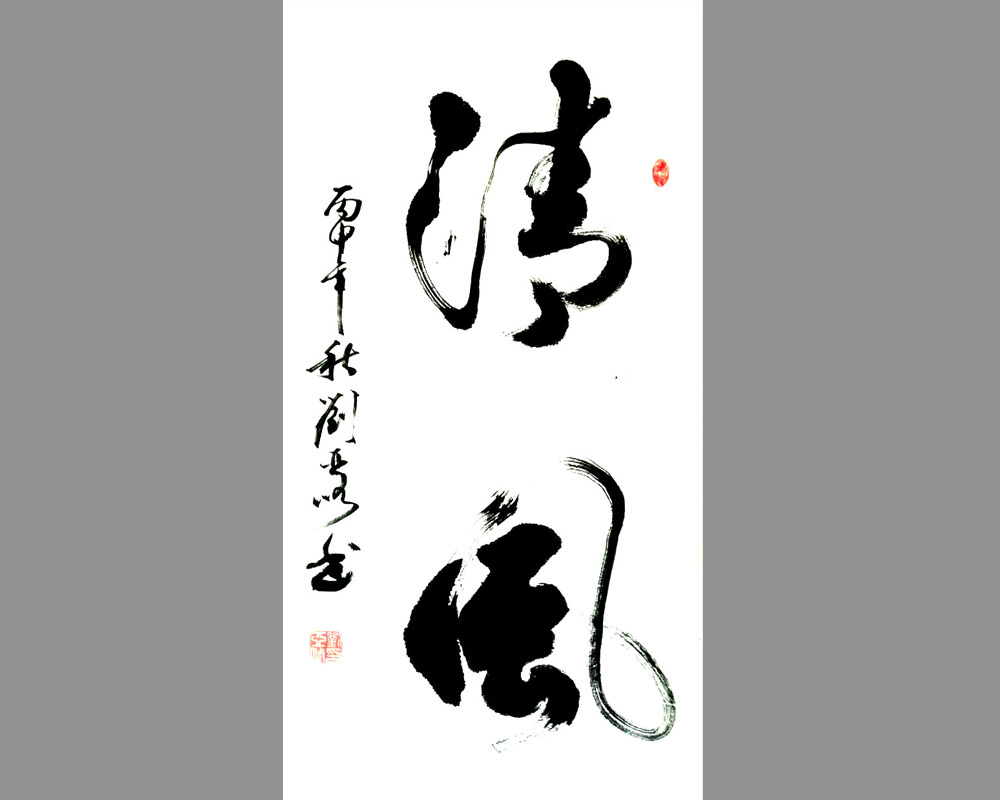 清風
丙申年秋劉亞